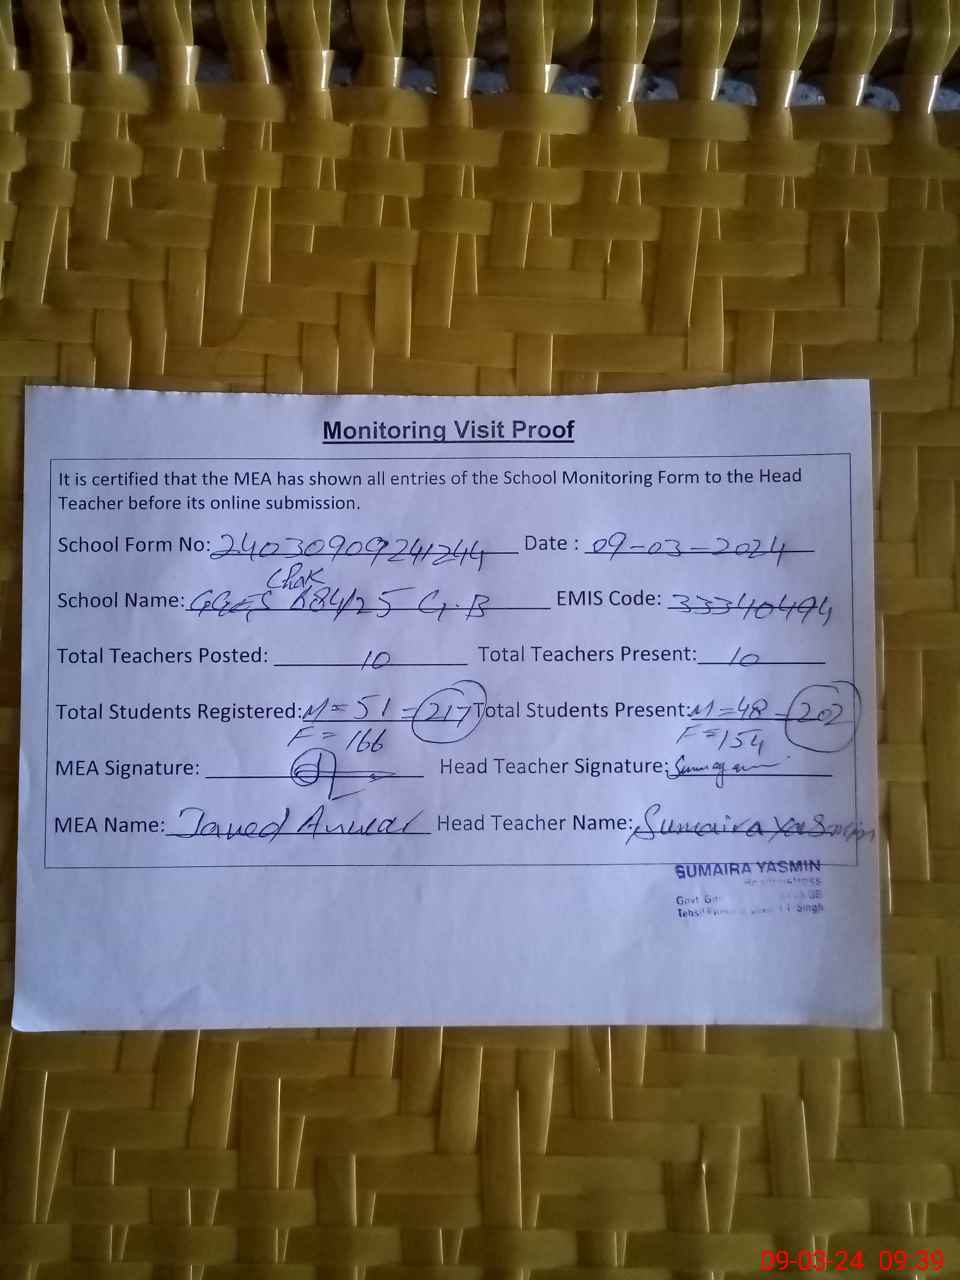 Monitoring Visit Proof
It is certified that the MEA has shown all entries of the School Monitoring Form to the Head
Teacher before its online submission.
School Form No: 24030909241244 Date : 09-03-2024
Chak
School Name: GGES 684/25 G.B EMIS Code: 33340494
Total Teachers Posted: 10 Total Teachers Present: 10
Total Students Registered: M = 51 = 217 Total Students Present: M = 48 = 202
F = 166 F = 154
MEA Signature: Head Teacher Signature:
MEA Name: Javed Anwar Head Teacher Name: Sumaira Yasmin
SUMAIRA YASMIN
Headmistress
Govt GB
Singh
09-03-24 09:39